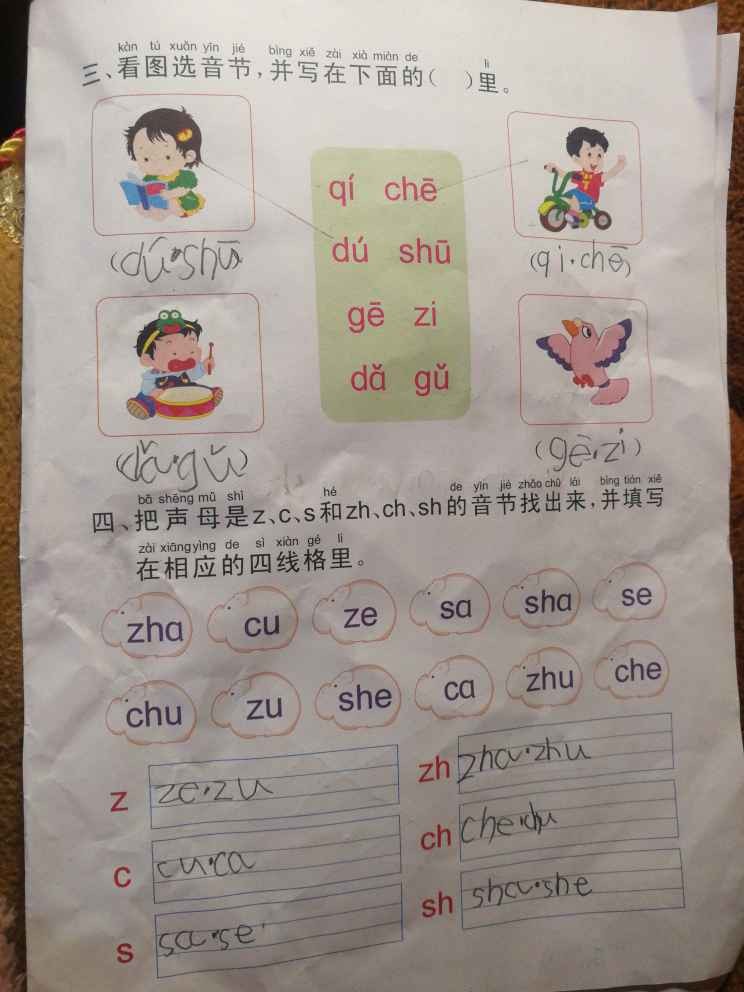 kàn tú xuǎn yīn jié bìng xiě zài xià miàn de lǐ
三、看图选音节，并写在下面的（ ）里。
qí chē
dú shū
gē zi
dǎ gǔ
(dú·shū)
(qi·chē)
(dǎ·gǔ)
(gē·zi)
bǎ shēng mǔ shì hé de yīn jié zhǎo chū lái bìng tián xiě
四、把声母是z、c、s和zh、ch、sh的音节找出来，并填写
zài xiāng yìng de sì xiàn gé lǐ
在相应的四线格里。
zha cu ze sa sha se
chu zu she ca zhu che
z ze·zu
zh zha·zhu
c cu·ca
ch che·chu
s sa·se
sh sha·she